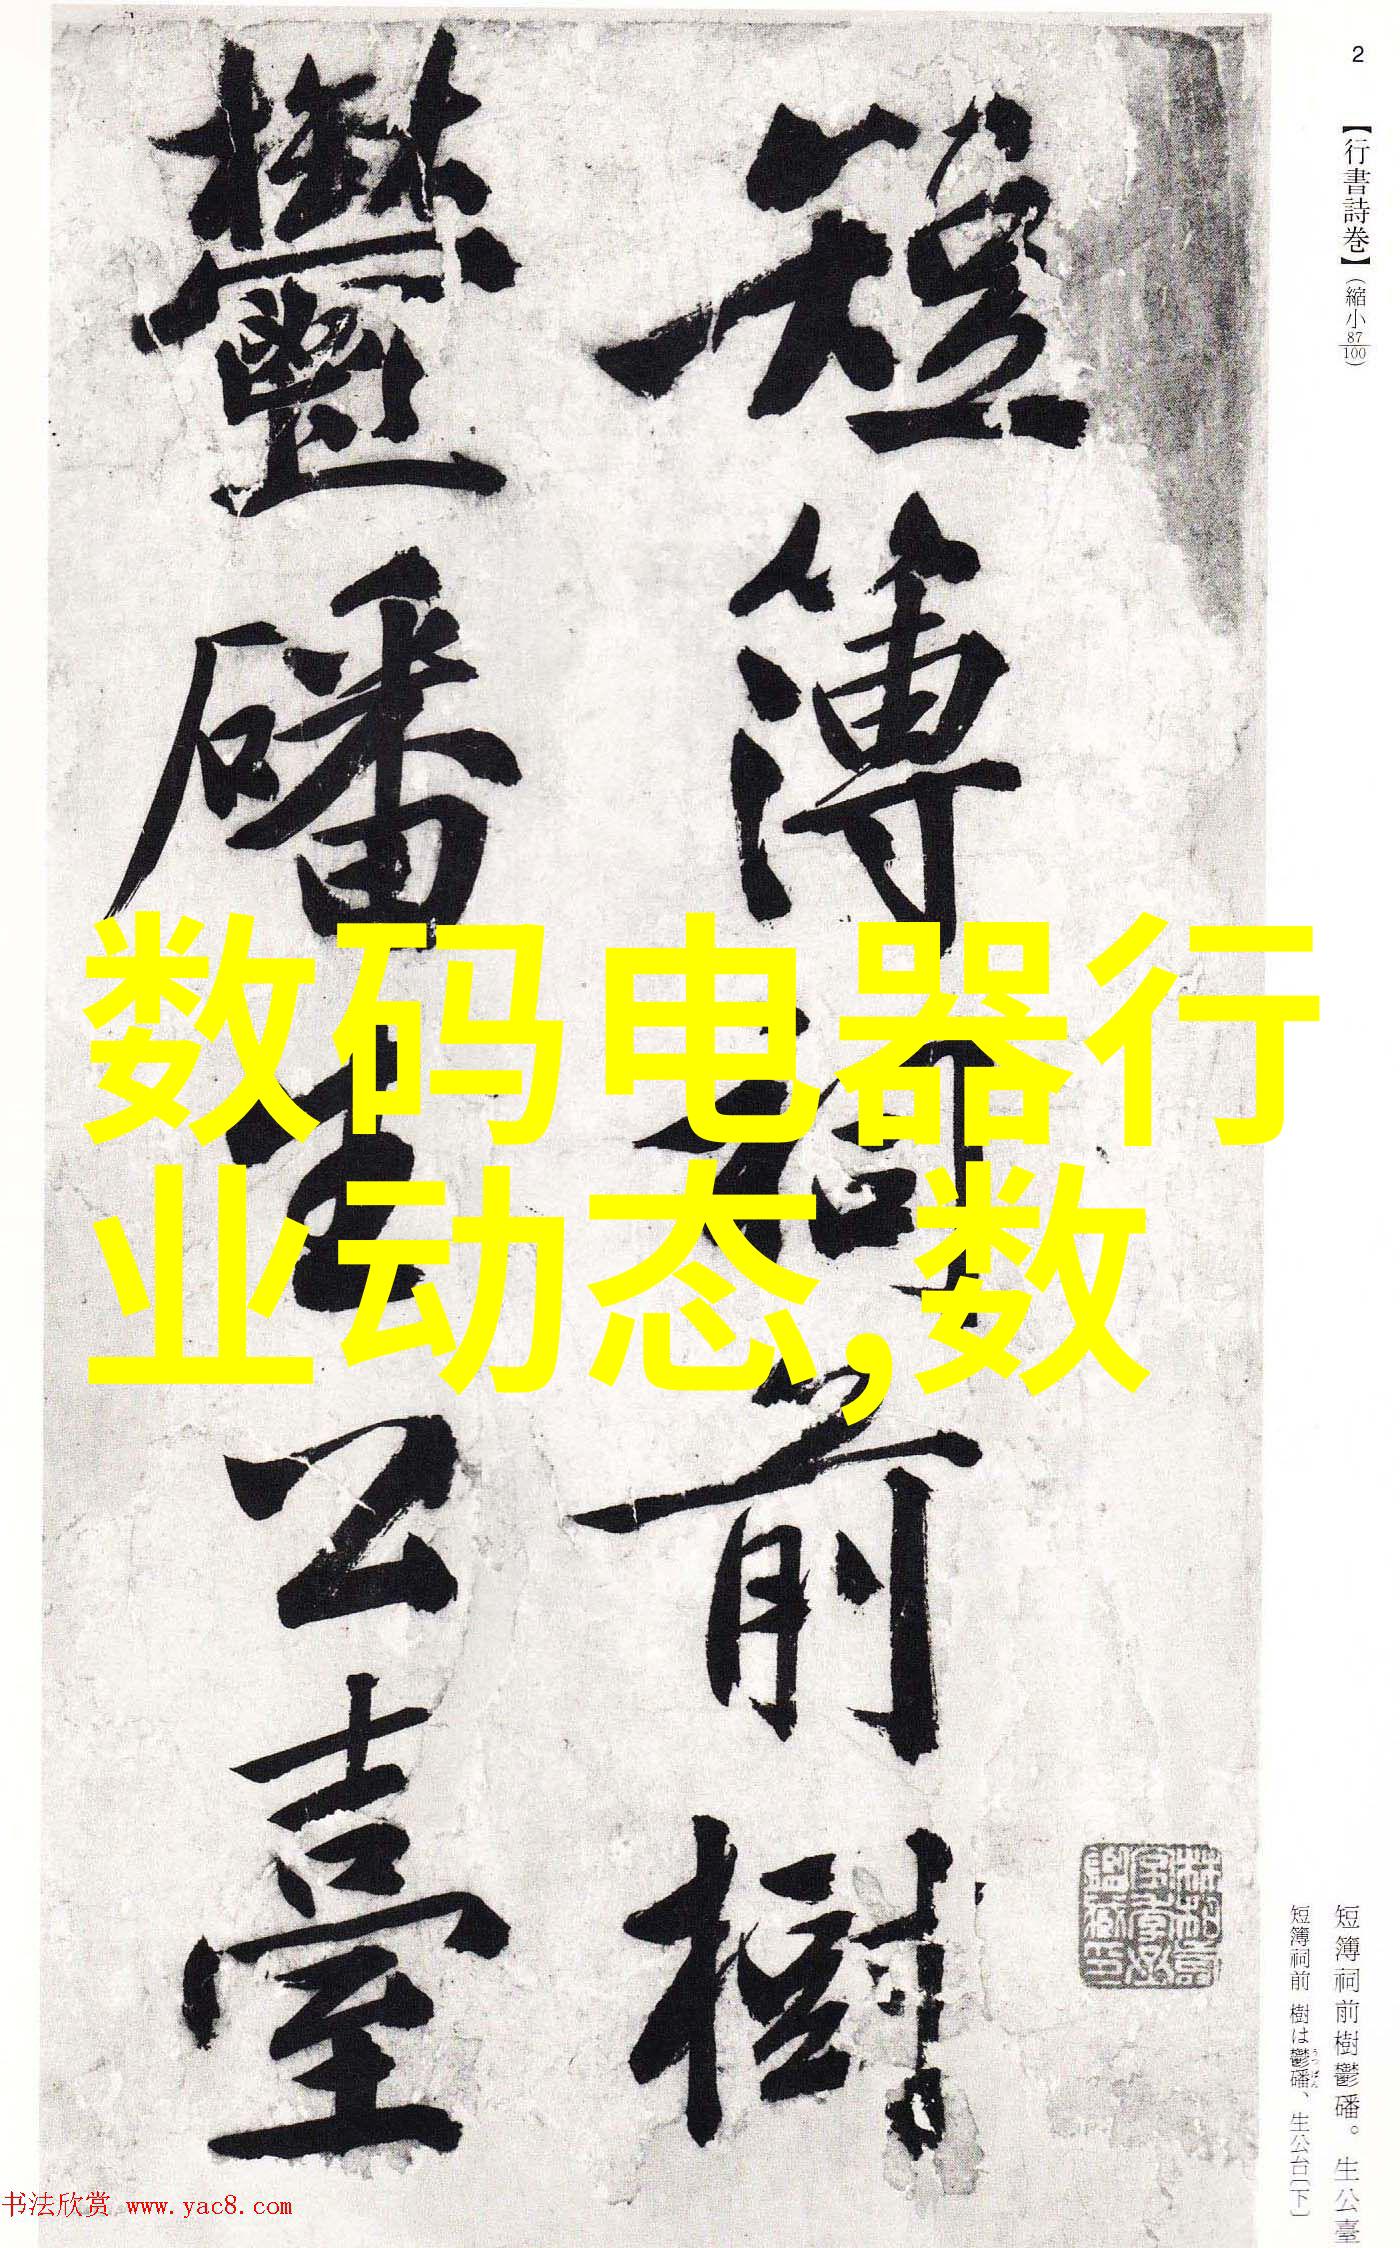 2
【行書詩巻】(縮小87/100)
短簿祠前樹
鬱磻生公臺
数码电器行
业动态,数
短簿祠前樹鬱磻。生公臺
短簿祠前 樹は鬱磻、生公台〔下〕
うっぱん
书法欣赏 www.yac8.com